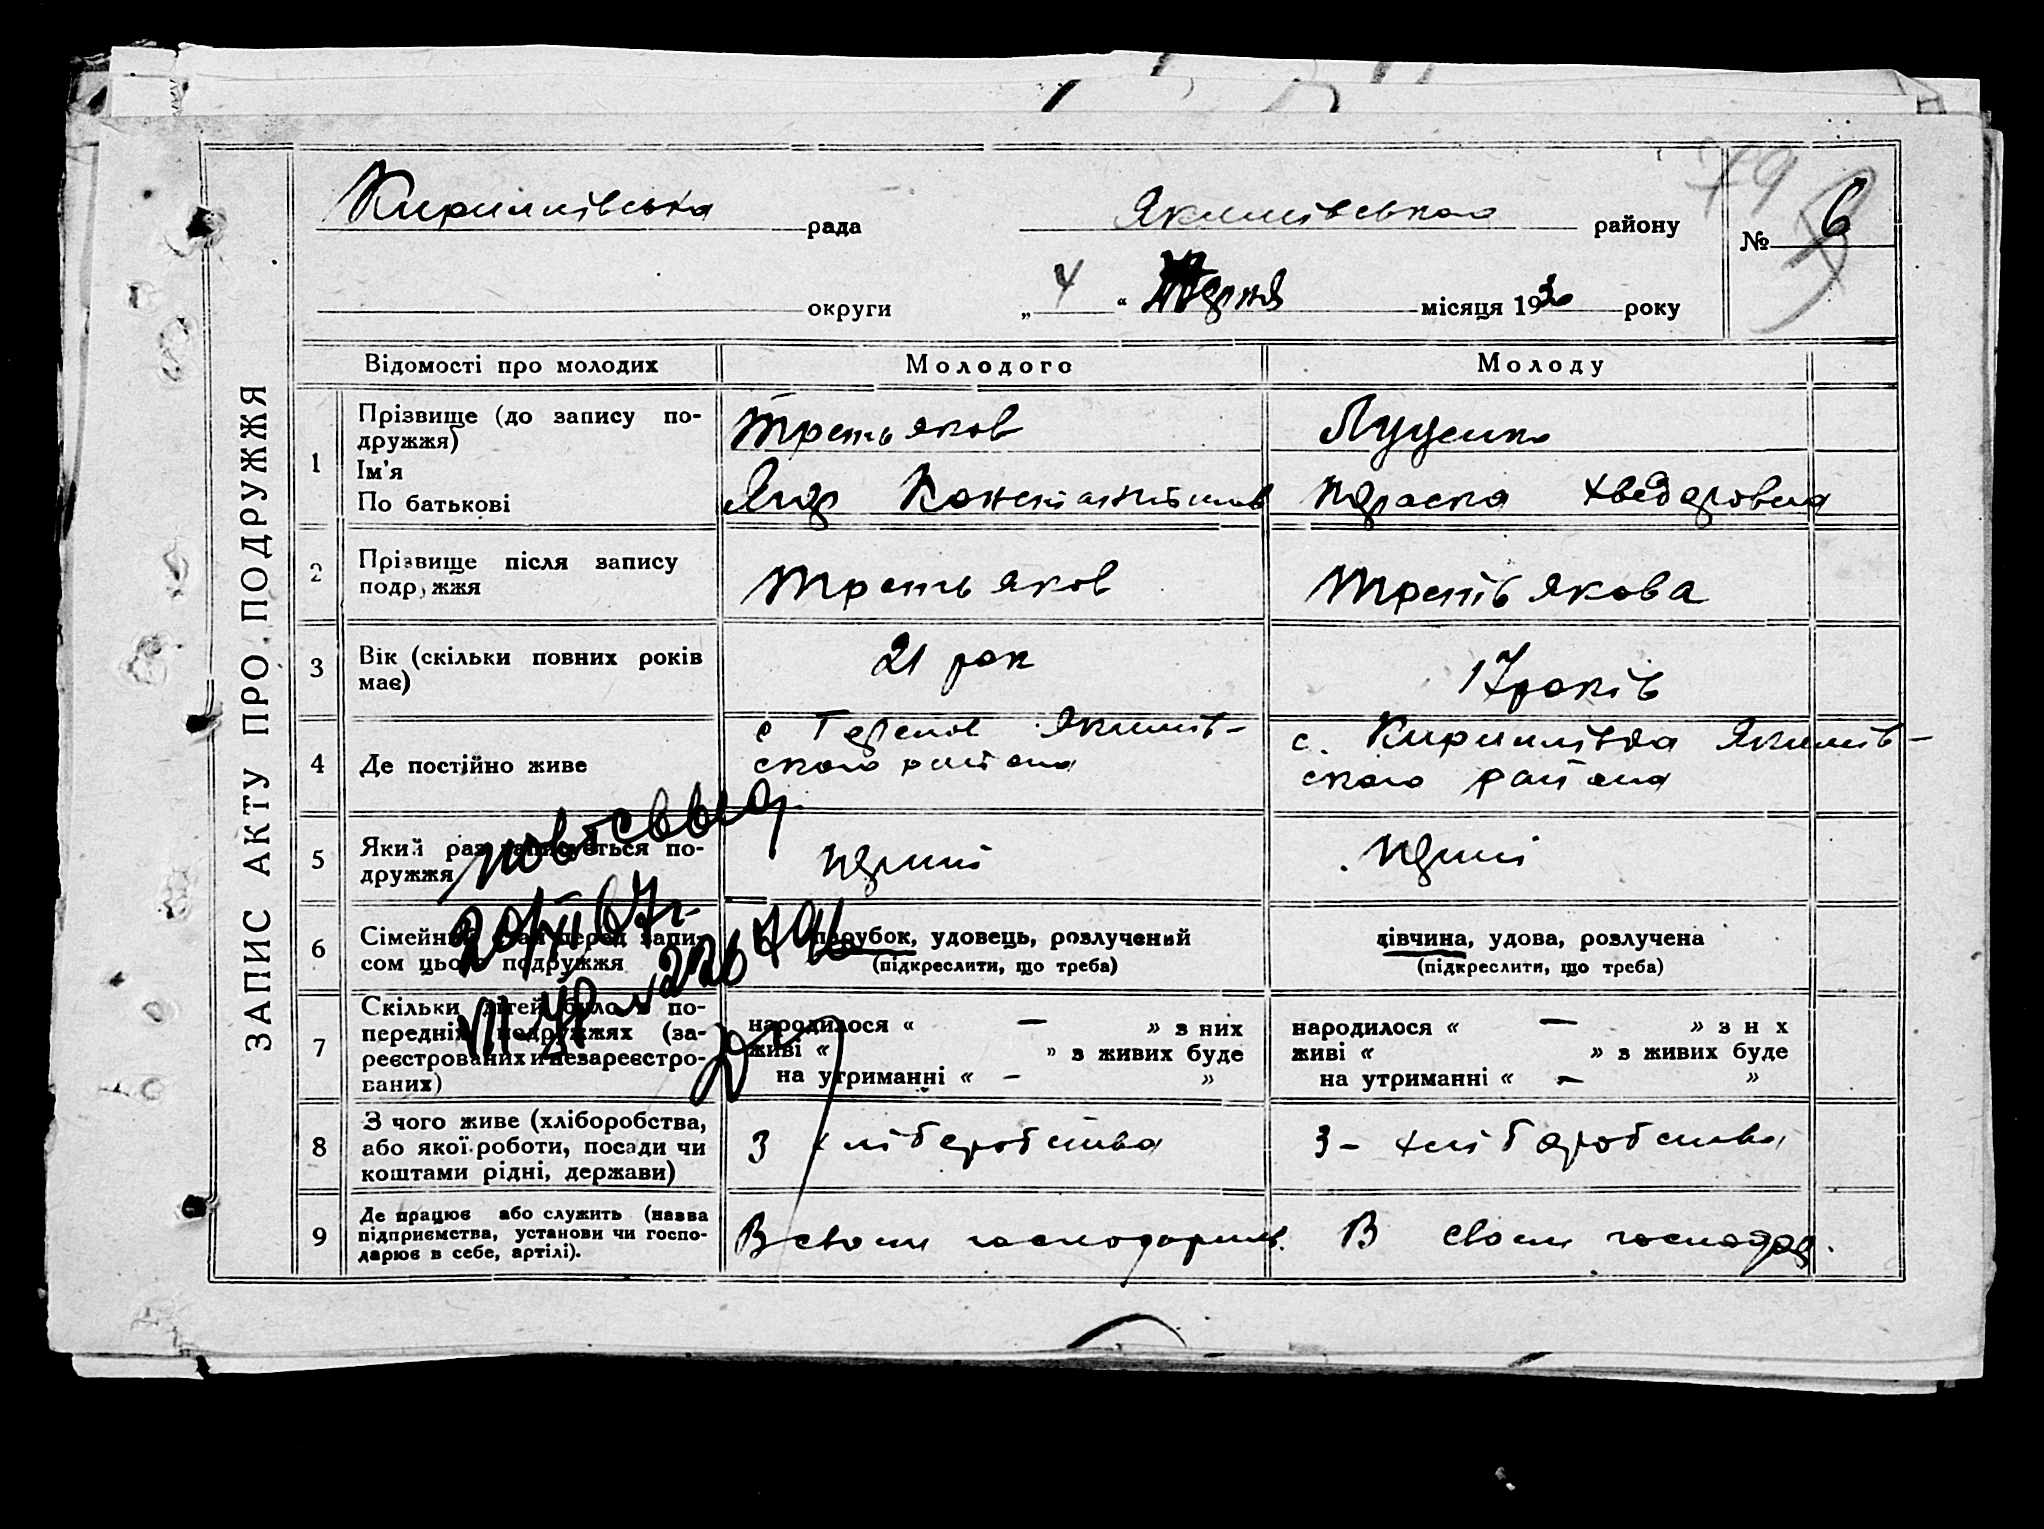 79
Кирилівська рада Якимівського району № 6
округи „ 4 “ місяця 1930 року
ЗАПИС АКТУ ПРО ПОДРУЖЖЯ
Відомості про молодих Молодого Молоду
1 Прізвище (до запису по-
дружжя) Третьяков Луценко
Ім'я
По батькові Константинов Параска Хведоровна
2 Прізвище після запису
подружжя Третьяков Третьякова
3 Вік (скільки повних років
має) 21 рок 17 років
4 Де постійно живе с Якимів-
ского района с. Кирилівка Якимів-
ского района
5 Який раз записується по-
дружжя перший перший
повтсвыд
20/XII 67 г.
6 Сімейний стан перед запи-
сом цього подружжя парубок, удовець, розлучений
(підкреслити, що треба)
дівчина, удова, розлучена
(підкреслити, що треба)
7 Скільки дітей було в по-
передніх подружжях (за-
реєстрованих и незареєстро-
ваних)
народилося “ — ” з них
живі “ ” з живих буде
на утриманні “ — ”
народилося “ — ” з н х
живі “ ” з живих буде
на утриманні “ — ”
8 З чого живе (хліборобства,
або якої роботи, посади чи
коштами рідні, держави) З хліборобства З - хліборобства
9 Де працює або служить (назва
підприємства, установи чи госпо-
дарює в себе, артілі). В своєм господарств. В своєм господар.